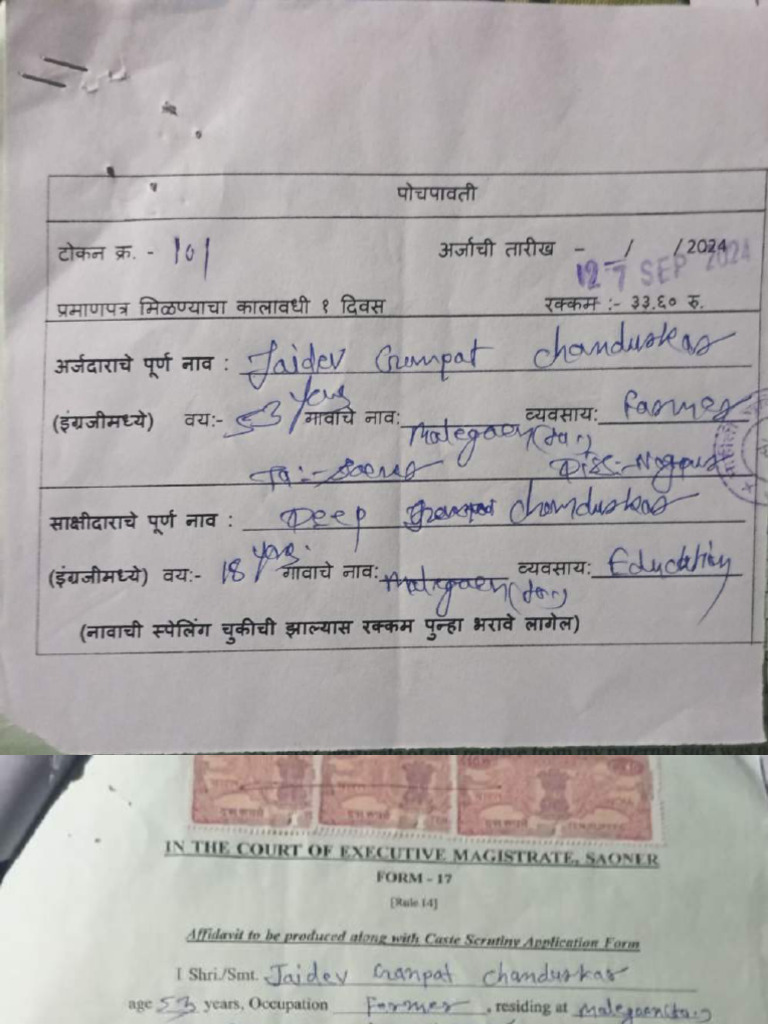 पोचपावती
टोकन क्र. - 101 अर्जाची तारीख - / /2024
127 SEP 2024
प्रमाणपत्र मिळण्याचा कालावधी १ दिवस रक्कम :- ३३.६० रु.
अर्जदाराचे पूर्ण नाव : Jaidev Ganpat Chanduskar
(इंग्रजीमध्ये) वय:- 53 years गावाचे नाव: Malegaon व्यवसाय: Farmer
Ta:- Saoner Dist:- Nagpur
साक्षीदाराचे पूर्ण नाव : Deep Ganpat Chanduskar
(इंग्रजीमध्ये) वय:- 18 years गावाचे नाव: Malegaon व्यवसाय: Education
(नावाची स्पेलिंग चुकीची झाल्यास रक्कम पुन्हा भरावे लागेल)
IN THE COURT OF EXECUTIVE MAGISTRATE, SAONER
FORM - 17
[Rule 14]
Affidavit to be produced along with Caste Scrutiny Application Form
I Shri./Smt. Jaidev Ganpat Chanduskar
age 53 years, Occupation Farmer, residing at Malegaon